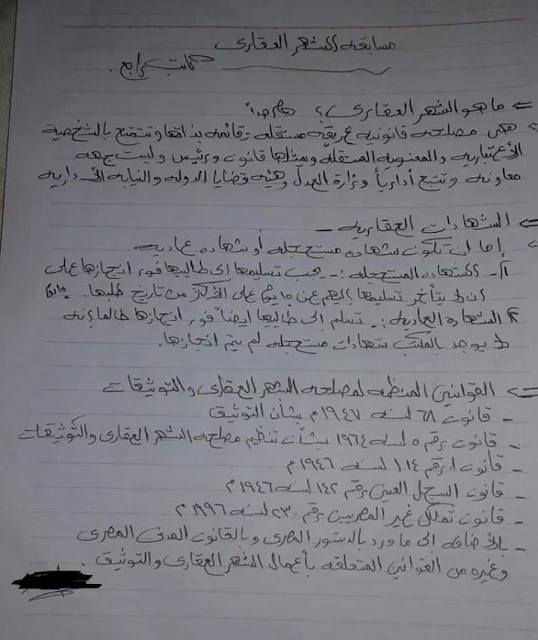 مسابقه الشهر العقارى
كاتب رابع .
ما هو الشهر العقارى ؟ هام جداً
هى مصلحه قانونيه عريقه مستقله وقائمه بذاتها وتتمتع بالشخصية
الأعتباريه والمعنويه المستقله ويمثلها قانون ورئيس وليست جهه
معاونه وتتبع أدارياً وزارة العدل وهيئه قضايا الدوله والنيابه الأداريه
الشهادات العقاريه -
إما ان تكون شهاده مستعجله أو شهاده عاديه
١- الشهاده المستعجله :- يجب تسليمها إلى طالبها فور انجازها على
ان لا يتأخر تسليمها عن ١٥ يوم على الأكثر من تاريخ طلبها .
٢ الشهاده العاديه :- تسلم الى طالبها ايضاً فور انجازها طالما إنه
لا يوجد بالمكتب شهادات مستعجله لم يتم انجازها .
القوانين المنظمه لمصلحه الشهر العقارى والتوثيقات
- قانون ٦٨ لسنه ١٩٤٧ م بشأن التوثيق
- قانون رقم ٥ لسنه ١٩٦٤ بشأن تنظيم مصلحه الشهر العقارى والتوثيقات
- قانون رقم ١١٤ لسنه ١٩٤٦ م
- قانون السجل العينى رقم ١٤٢ لسنه ١٩٤٦ م
- قانون تملك غير المصريين رقم ٢٣٠ لسنه ١٩٩٦ م
- بالأضافه الى ما ورد بالدستور المصرى وبالقانون المدنى المصرى
وغيره من القوانين المتعلقه بأعمال الشهر العقارى والتوثيق .